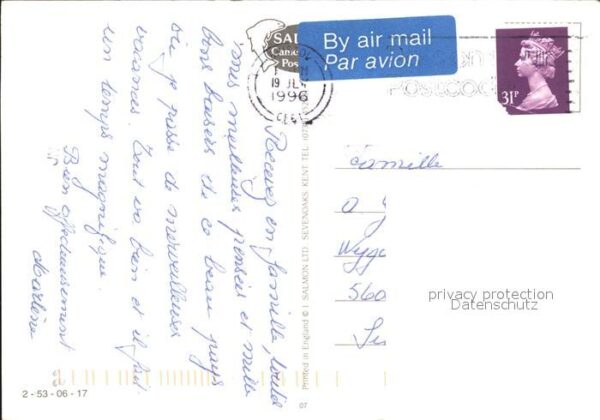 Recevez en famille, toutes
mes meilleures pensées et mille
bons baisers de ce beau pays
où je passe de merveilleuses
vacances. Tout va bien et il fait
un temps magnifique.
Bien affectueusement
SAL
Came
Post
By air mail
Par avion
19 JL
1996
POSTCOD
31P
Famille
Wyge
560
privacy protection
Datenschutz
Printed in England © J. SALMON LTD. SEVENOAKS. KENT TEL. 
2 - 53 - 06 - 17
07